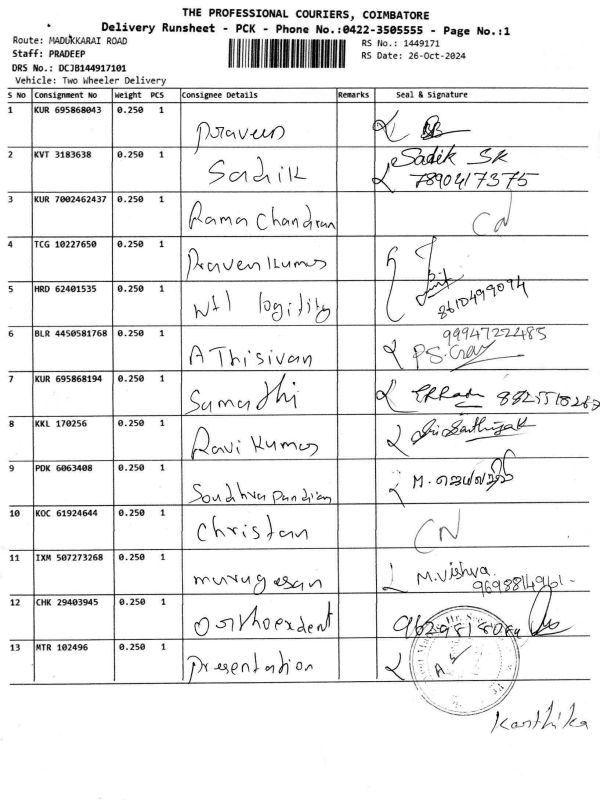 THE PROFESSIONAL COURIERS, COIMBATORE
Delivery Runsheet - PCK - Phone No.:0422-3505555 - Page No.:1
Route: MADUKKARAI ROAD
RS No.: 1449171
Staff: PRADEEP
RS Date: 26-Oct-2024
DRS No.: DCJB144917101
Vehicle: Two Wheeler Delivery
S No Consignment No Weight PCS Consignee Details Remarks Seal & Signature
1 KUR 695868043 0.250 1 Praveen
2 KVT 3183638 0.250 1 Sadik Sadik SK
7890417375
3 KUR 7002462437 0.250 1 Rama Chandran CN
4 TCG 10227650 0.250 1 Praven Kumar
5 HRD 62401535 0.250 1 wtl logitity 8610499094
6 BLR 4450581768 0.250 1 A Thisivan 9994722485
7 KUR 695868194 0.250 1 Samadhi
8 KKL 170256 0.250 1 Ravi Kumar
9 PDK 6063408 0.250 1 Soudhra pandian M.
10 KOC 61924644 0.250 1 Christan CN
11 IXM 507273268 0.250 1 murugesan M. Vishva
9698814961
12 CHK 29403945 0.250 1 Orthoexdent
13 MTR 102496 0.250 1 Presentation
Karthika